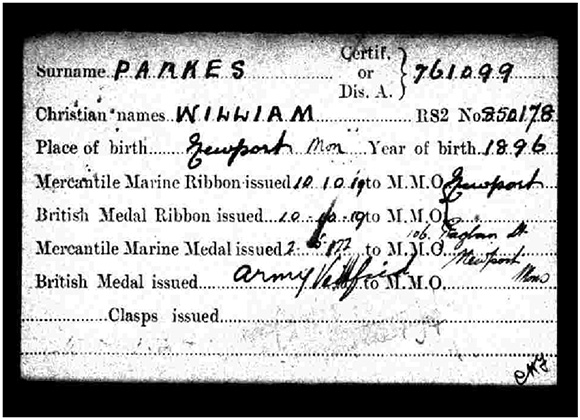 Surname PARKES Certif. or Dis. A. } 761099
Christian names WILLIAM RS2 No 850178
Place of birth Newport Mon Year of birth 1896
Mercantile Marine Ribbon issued 10.10.19 to M.M.O. Newport
British Medal Ribbon issued 10.10.19 to M.M.O.
106. Raglan St
Mercantile Marine Medal issued 2 to M.M.O. Newport
Mon
British Medal issued Army Verified to M.M.O.
Clasps issued